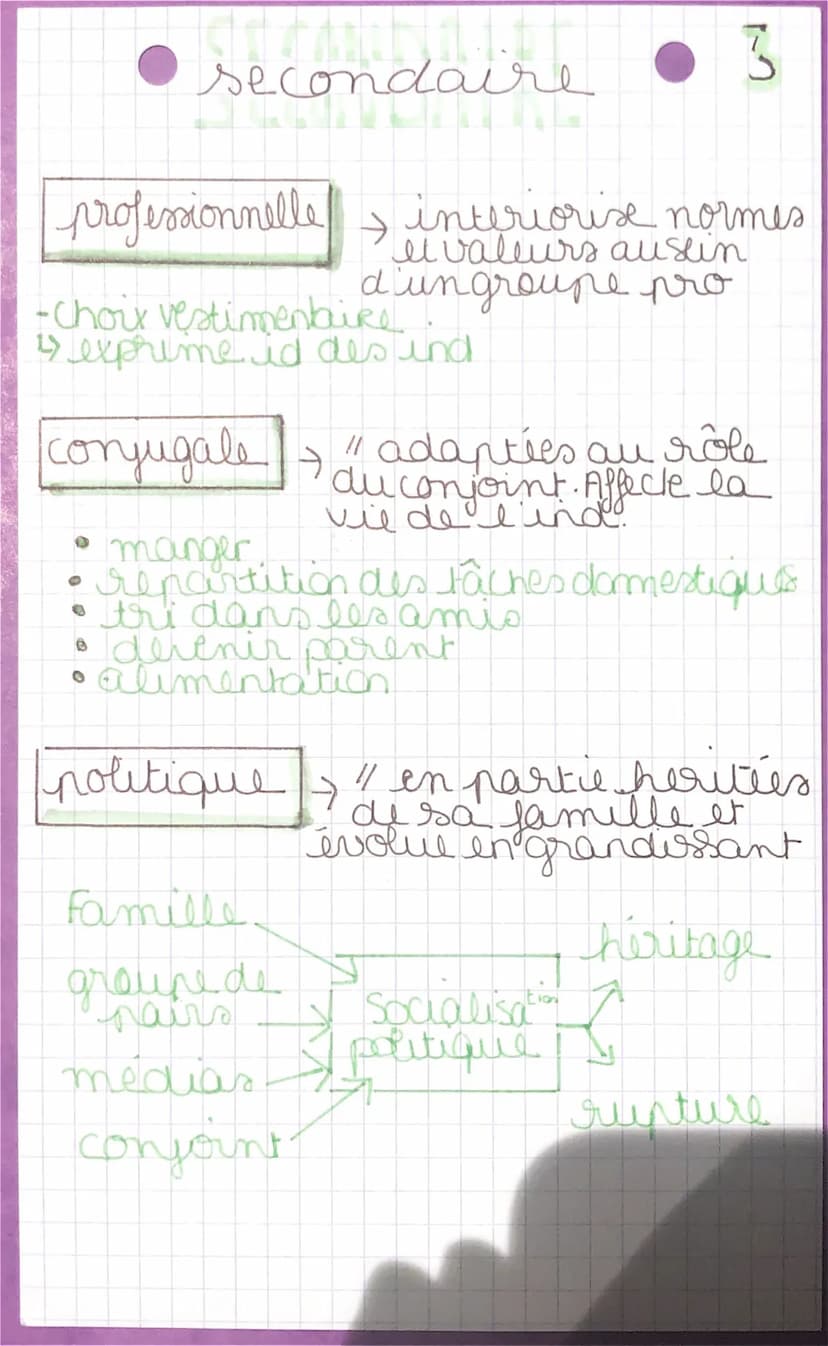 secondaire
3
professionnelle → interiorise normes
et valeurs au sein
d'un groupe pro
- choix vestimentaire
↳ exprime id des ind
conjugale → " adaptées au rôle
du conjoint. Affecte la
vie de l'ind.
• manger
• repartition des tâches domestiques
• tri dans les amis
• devenir parent
• alimentation
politique → " en partie heritées
de sa famille et
évolue en grandissant
Famille
héritage
groupe de
pairs
socialisation
politique
médias
rupture
conjoint